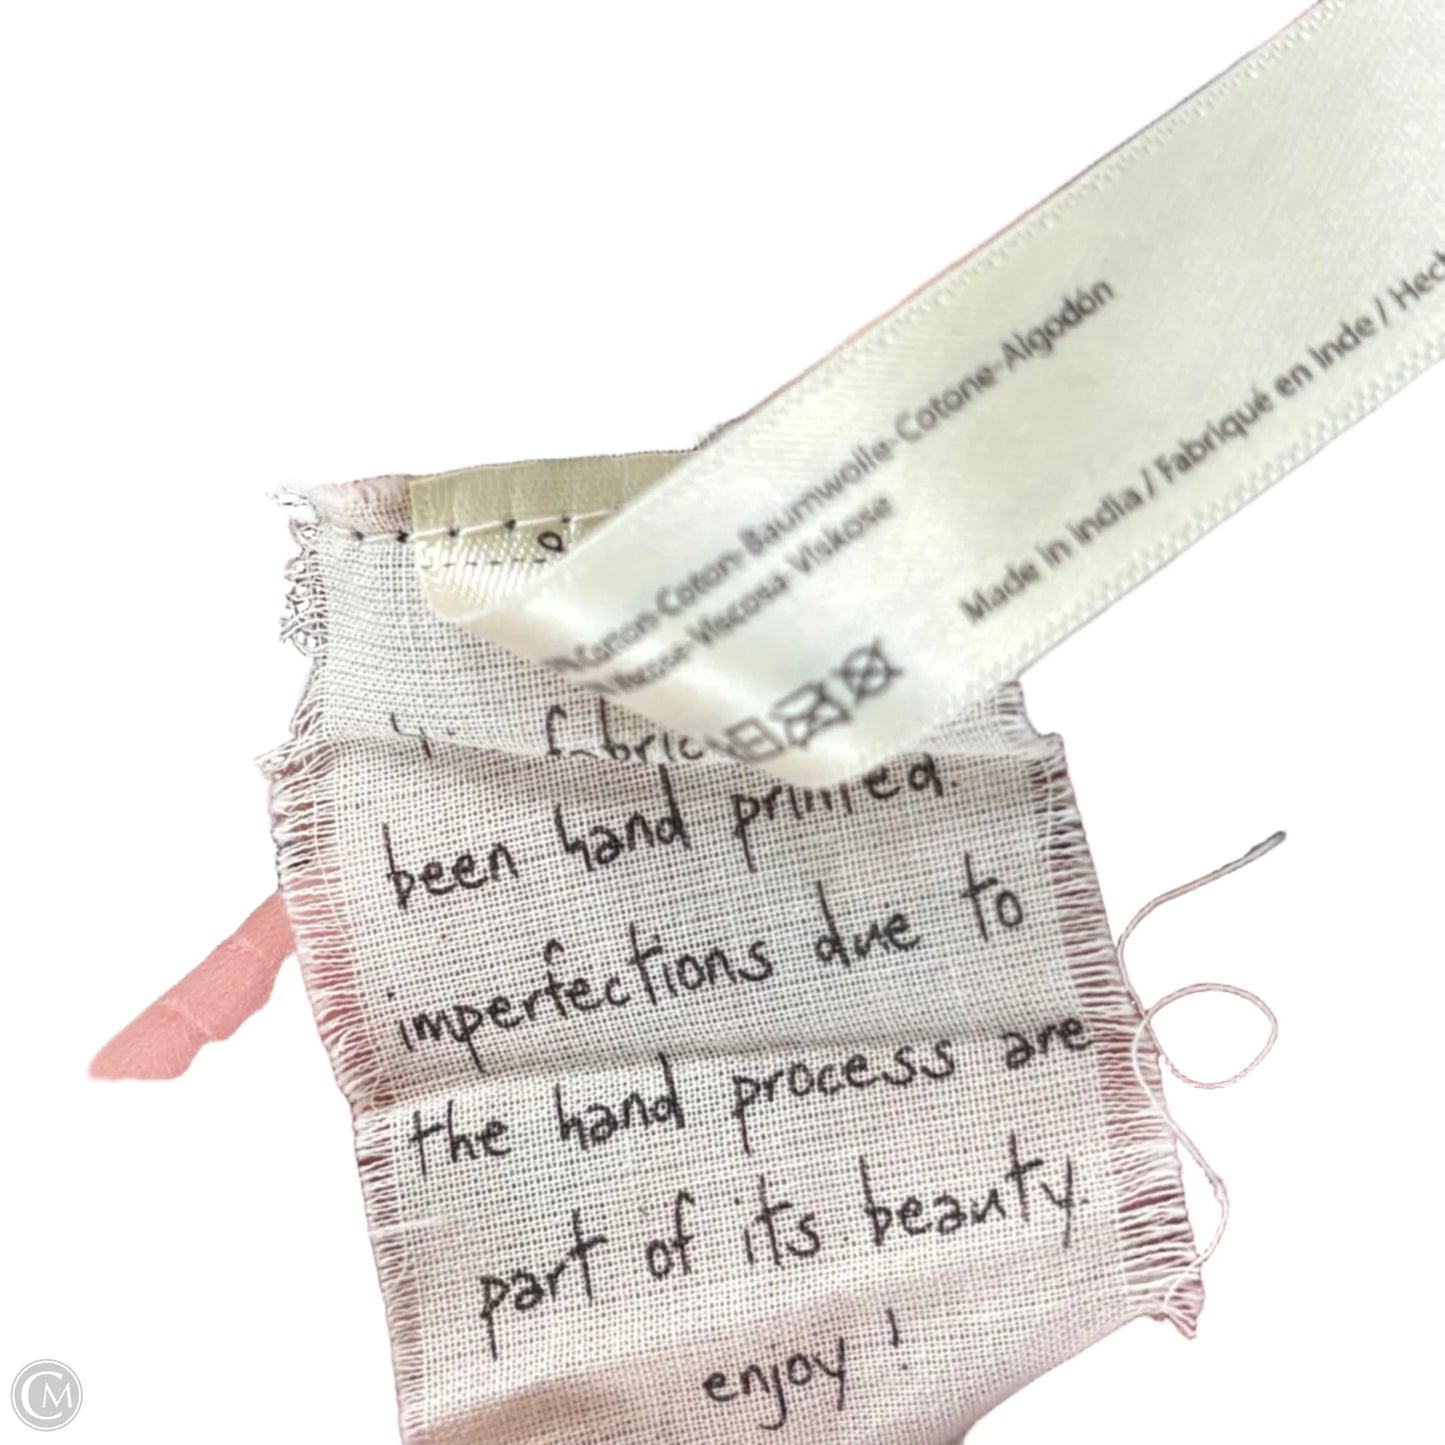 Cotton-Coton-Baumwolle-Cotone-Algodón
Viscose-Viscosa-Viskose
Made in India / Fabriqué en Inde / Hech
fabric
been hand printed.
imperfections due to
the hand process are
part of its beauty.
enjoy!
CM